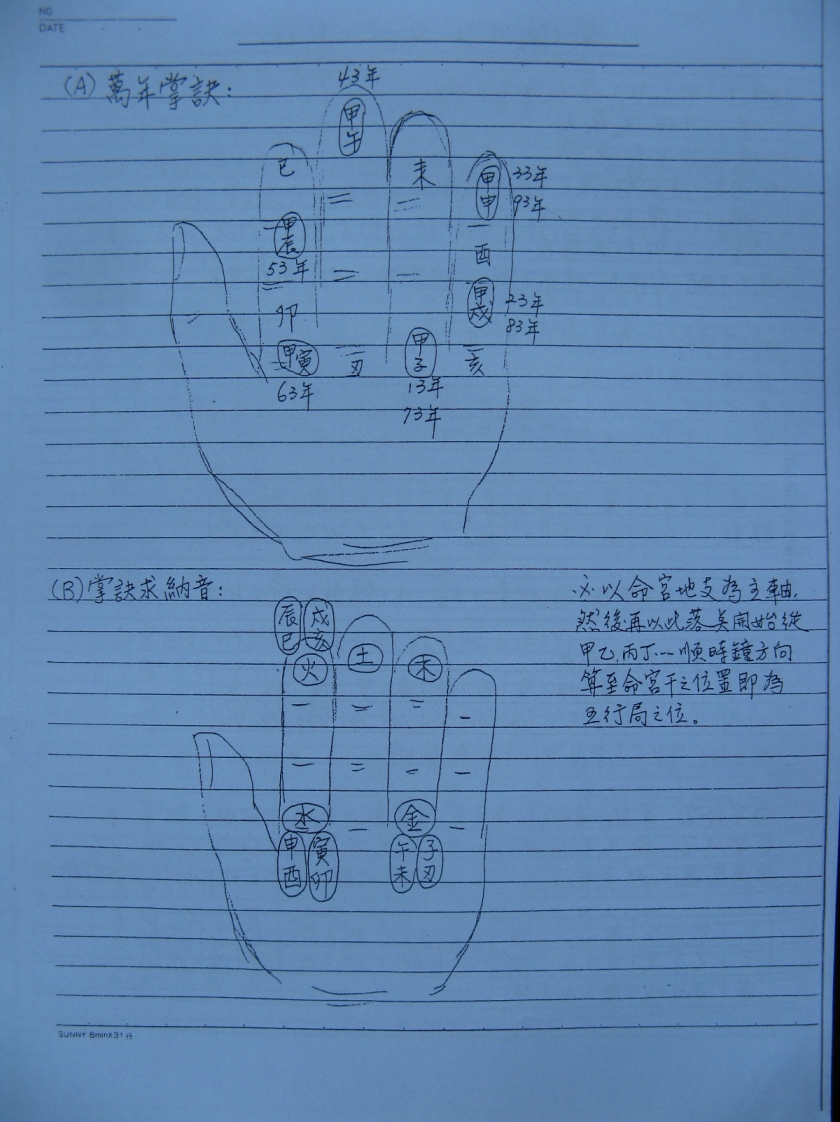 NO
DATE
(A) 萬年掌訣：
43年
甲午
巳
未
甲申 33年
93年
甲辰
53年
酉
甲戌 23年
83年
卯
甲寅
63年
丑
甲子
13年
73年
亥
(B) 掌訣求納音：
※以命宮地支為主軸，
然後再以此落美開始從
甲乙，丙丁…順時鐘方向
算至命宮干之位置即為
五行局之位。
辰巳 戌亥
火 土 木
水 金
申酉 寅卯 午未 子丑
SUNNY 8mmX31行